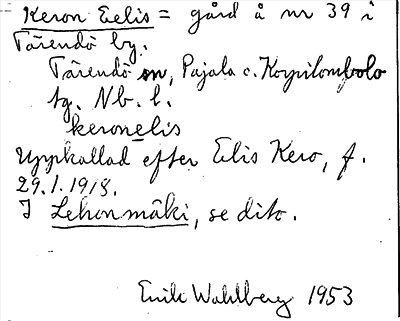 Keron Eelis = gård å nr 39 i
Tärendö by.
Tärendö sn, Pajala o. Korpilombolo
tg. Nb. l.
keronelis
Uppkallad efter Elis Kero, f.
29.1.1918.
I Lehonmäki, se dito.
Erik Wahlberg 1953